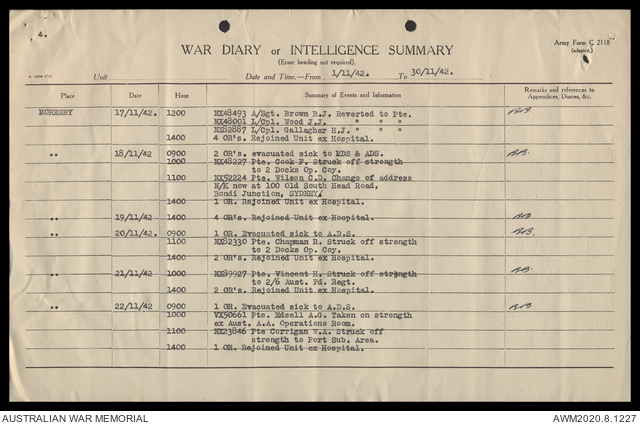 4.
WAR DIARY or INTELLIGENCE SUMMARY
Army Form C 2118
(adapted.)
(Erase heading not required).
Unit
Date and Time.—From 1/11/42. To 30/11/42.
Place Date Hour Summary of Events and Information Remarks and references to Appendices, Diaries, &c.
MORESBY 17/11/42. 1200 NX48493 A/Sgt. Brown B.J. Reverted to Pte.
NX48001 L/Cpl. Wood J.J. " " "
NX82887 L/Cpl. Gallagher H.J. " " "
1400 4 OR's. Rejoined Unit ex Hospital.
" 18/11/42 0900 2 OR's. evacuated sick to MDS & ADS.
1000 NX48227 Pte. Cook F. Struck off strength
to 2 Docks Op. Coy.
1100 NX52224 Pte. Wilson C.D. Change of address
N/K now at 100 Old South Head Road,
Bondi Junction, SYDNEY.
1400 1 OR. Rejoined Unit ex Hospital.
" 19/11/42 1400 4 OR's. Rejoined Unit ex Hospital.
" 20/11/42 0900 1 OR. Evacuated sick to A.D.S.
1100 NX82330 Pte. Chapman R. Struck off strength
to 2 Docks Op. Coy.
1400 2 OR's. Rejoined Unit ex Hospital.
" 21/11/42 1000 NX89927 Pte. Vincent H. Struck off strength
to 2/6 Aust. Fd. Regt.
1400 2 OR's. Rejoined Unit ex Hospital.
" 22/11/42 0900 1 OR. Evacuated sick to A.D.S.
1000 VX50661 Pte. Edsell A.G. Taken on strength
ex Aust. A.A. Operations Room.
1100 NX23846 Pte Corrigan W.A. Struck off
strength to Port Sub. Area.
1400 1 OR. Rejoined Unit ex Hospital.
AUSTRALIAN WAR MEMORIAL
AWM2020.8.1227